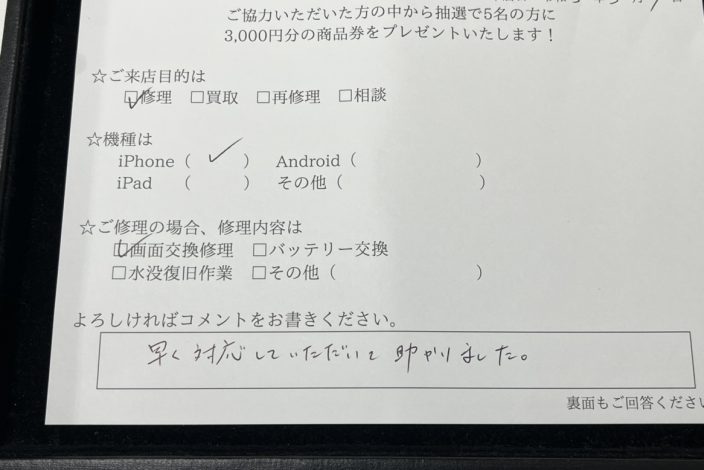 ご協力いただいた方の中から抽選で5名の方に
3,000円分の商品券をプレゼントいたします！
☆ご来店目的は
☑修理 □買取 □再修理 □相談
☆機種は
iPhone（ ✓ ） Android（ ）
iPad （ ） その他（ ）
☆ご修理の場合、修理内容は
☑画面交換修理 □バッテリー交換
□水没復旧作業 □その他（ ）
よろしければコメントをお書きください。
早く対応していただいて助かりました。
裏面もご回答ください